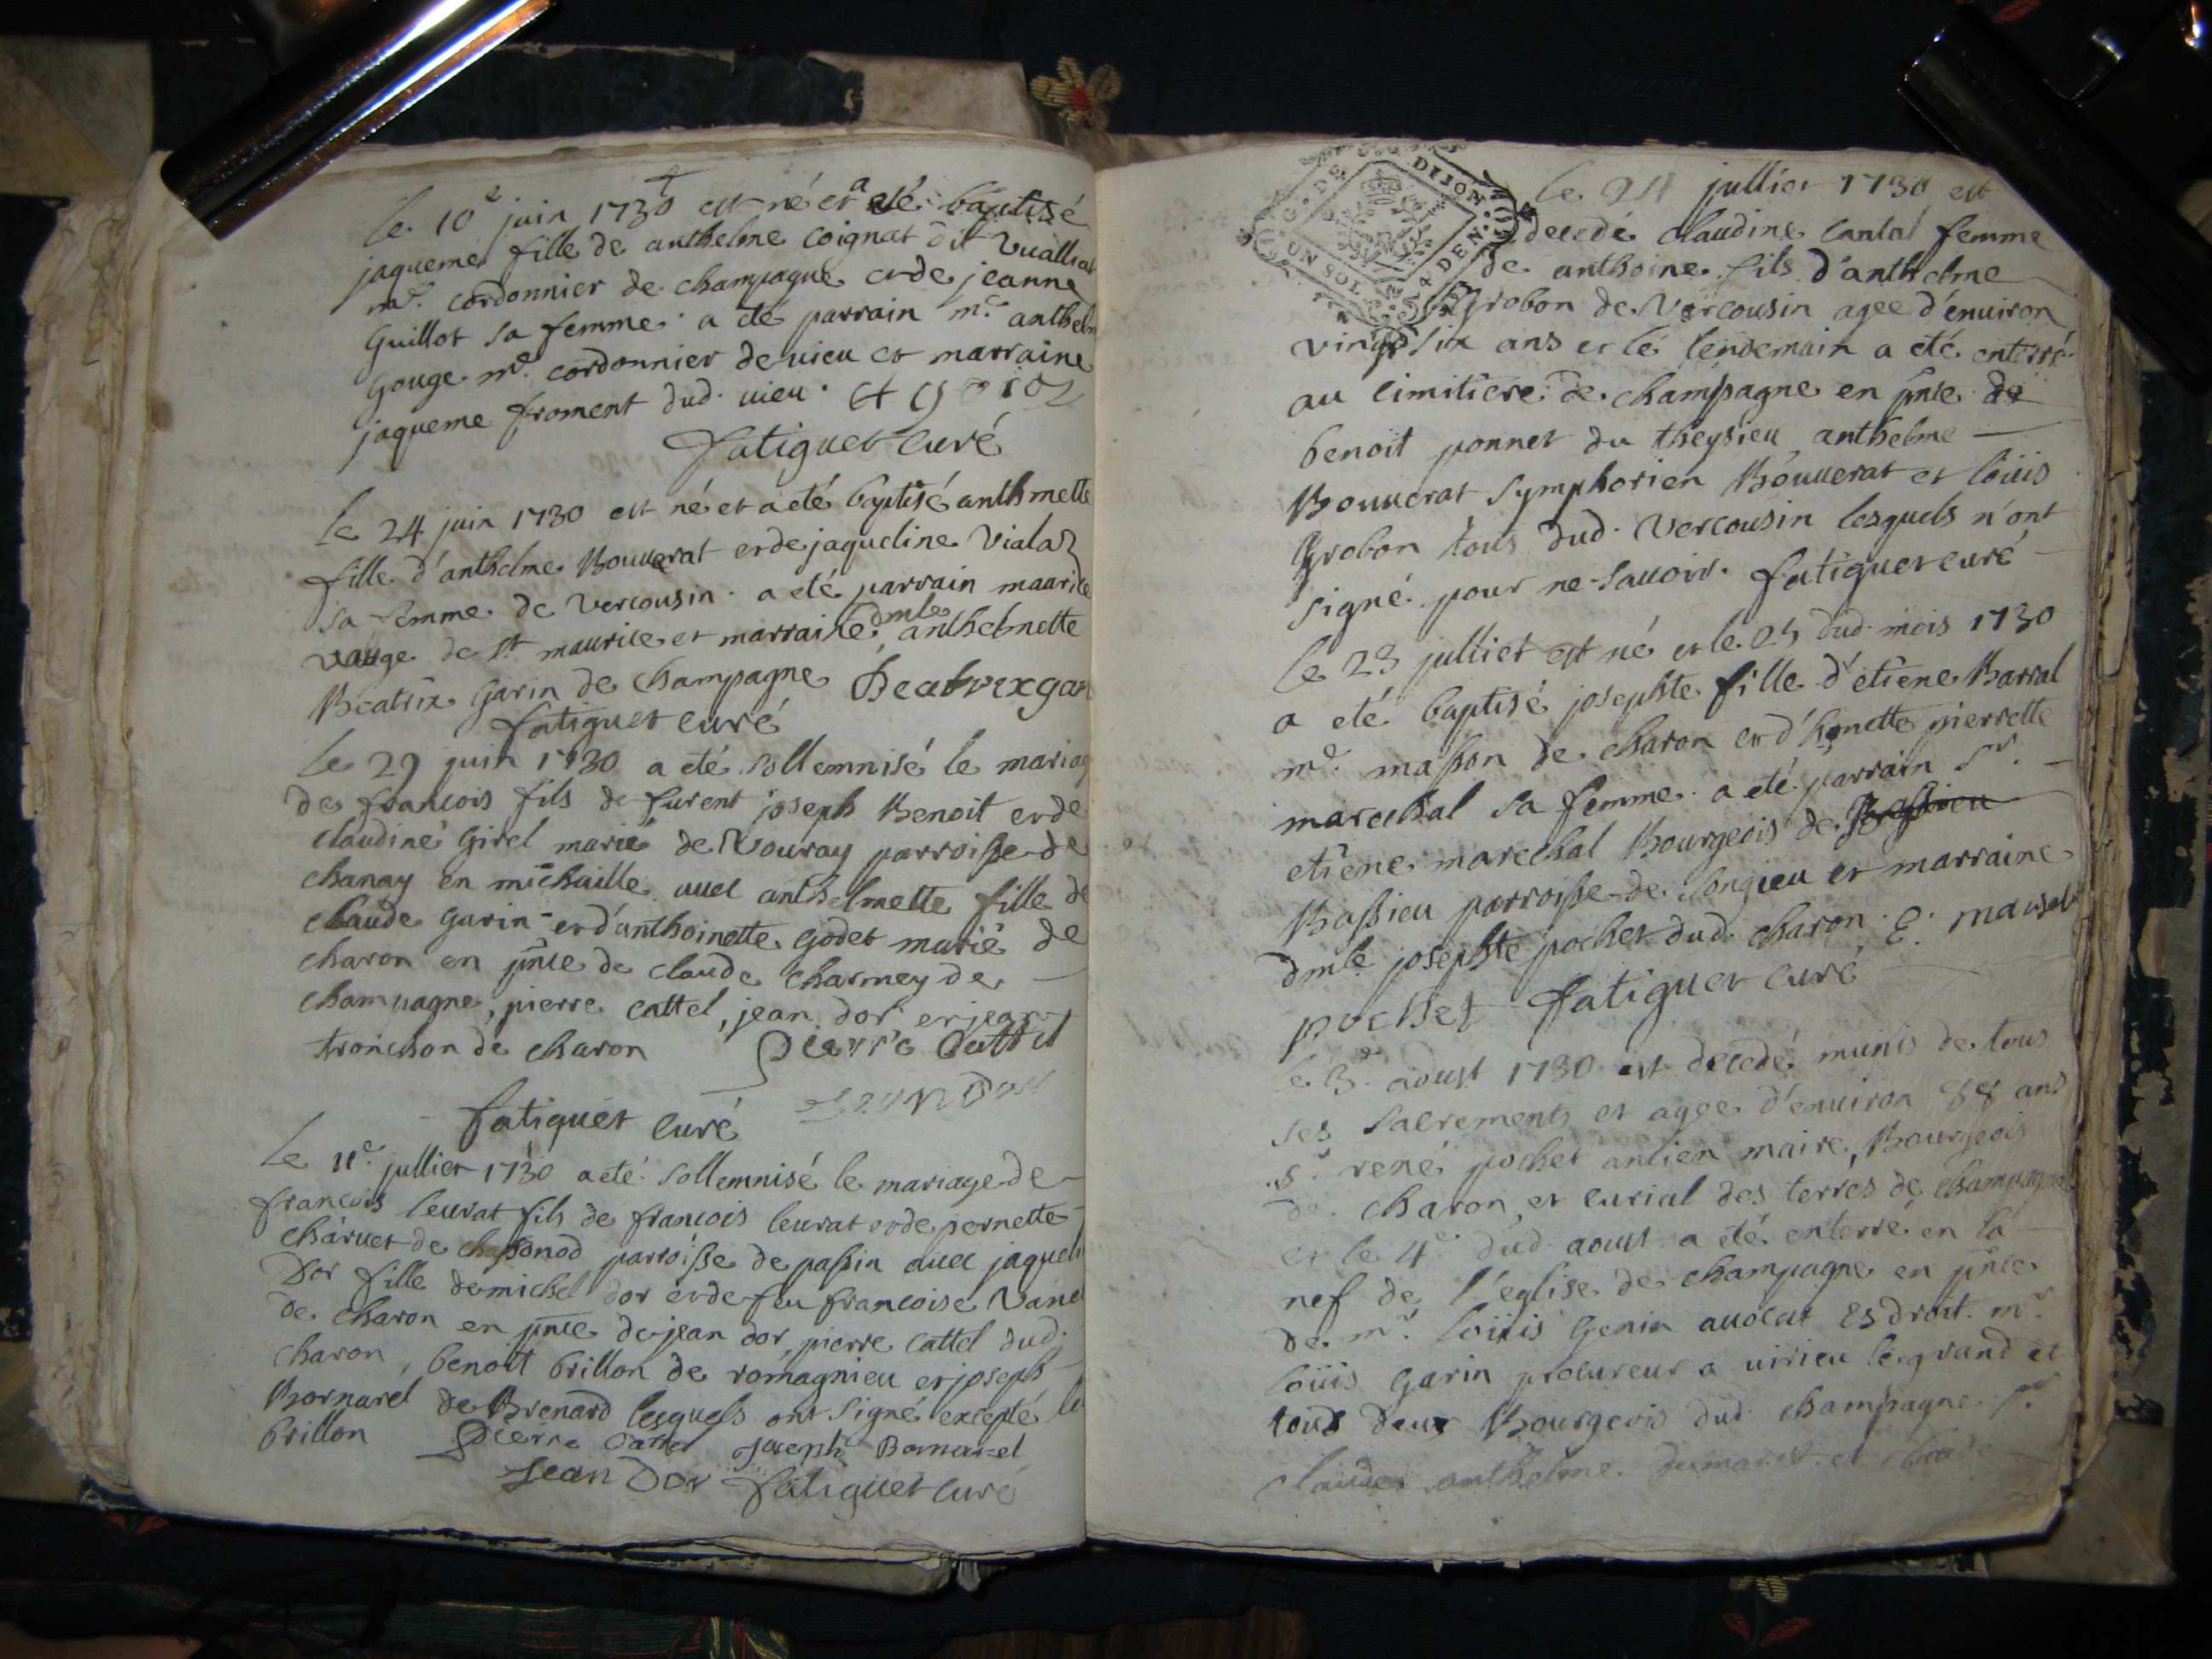 le 10e juin 1730 est né et a eté baptisé
jaqueme fille de anthelme coignat dit vualliat
md. cordonnier de champagne et de jeanne
Guillot sa femme a eté parrain md. anthelm
Gouge md. cordonnier de vieu et marraine
jaqueme froment dud. vieu.
fatiguet curé
le 24 juin 1730 est né et a eté baptisé anthmette
fille d'anthelme Bouuerat et de jaqueline Viala
sa femme de Vercousin. a eté parrain
vauge de st. maurice et marraine dmle anthelmette
Beatrix Garin de Champagne Beatrixgar
fatiguet curé
le 29 juin 1730 a eté sollemnisé le mariag
de francois fils de furent joseph Benoit et de
claudine Girel marié de Vouray parroisse de
chanay en michaille auec anthelmette fille de
claude Garin et d'anthoinette Godet marié de
charon en pñce de claude Charmey de
champagne, pierre cattel, jean dor et jean
tronchon de charon Pierre Cattel
jean Dor
fatiguet curé
Le 11e. jullier 1730 a eté sollemnisé le mariage de
francois leurat fils de francois leurat et de pernette
charuet de chassonod parroisse de passin auec jaqueli
Dor fille de michel dor et de feu francoise Vane
de charon en pñce de jean dor, pierre cattel dud.
charon, benoit brillon de romagnieu et joseph
Bornarel de Brenard lesquels ont signé excepté le
brillon Pierre Cattel joseph Bornarel
jean Dor fatiguet curé
G. DE DIJON
UN SOL 4 DEN.
le 24 jullier 1730 est
decedé claudine cantal femme
de anthoine fils d'anthelme
Grobon de Vercousin agee d'enuiron
vingt six ans et le lendemain a eté enterré
au cimitiere de champagne en pñce de
benoit ponnet du theysieu anthelme
Bouuerat symphorien Bouuerat et loüis
Grobon tous dud. Vercousin lesquels n'ont
signé pour ne sauoir. fatiguet curé
le 23 jullier est né et le 25 dud. mois 1730
a eté baptisé josephte fille d'etiene Barral
md. masson de charon et d'honette pierrette
marechal sa femme a eté parrain sr.
etiene marechal Bourgeois de Bassieu
Bassieu parroisse de songieu et marraine
dmle josephte pochet dud. charon. E. marsal
pochet fatiguet curé
le 3e aoust 1730 est decedé munis de tous
ses sacrements et agee d'enuiron 88 ans
sr. rené pochet antien maire, Bourgeois
de charon, et curial des terres de champagne
et le 4e dud. aoust a eté enterré en la
nef de l'eglise de champagne en pñce
de mr. loüis Genin auocat es droit. mr.
loüis Garin procureur a virieu le grand et
tous deux Bourgeois dud. champagne. sr.
claude anthelme dumarest et claude